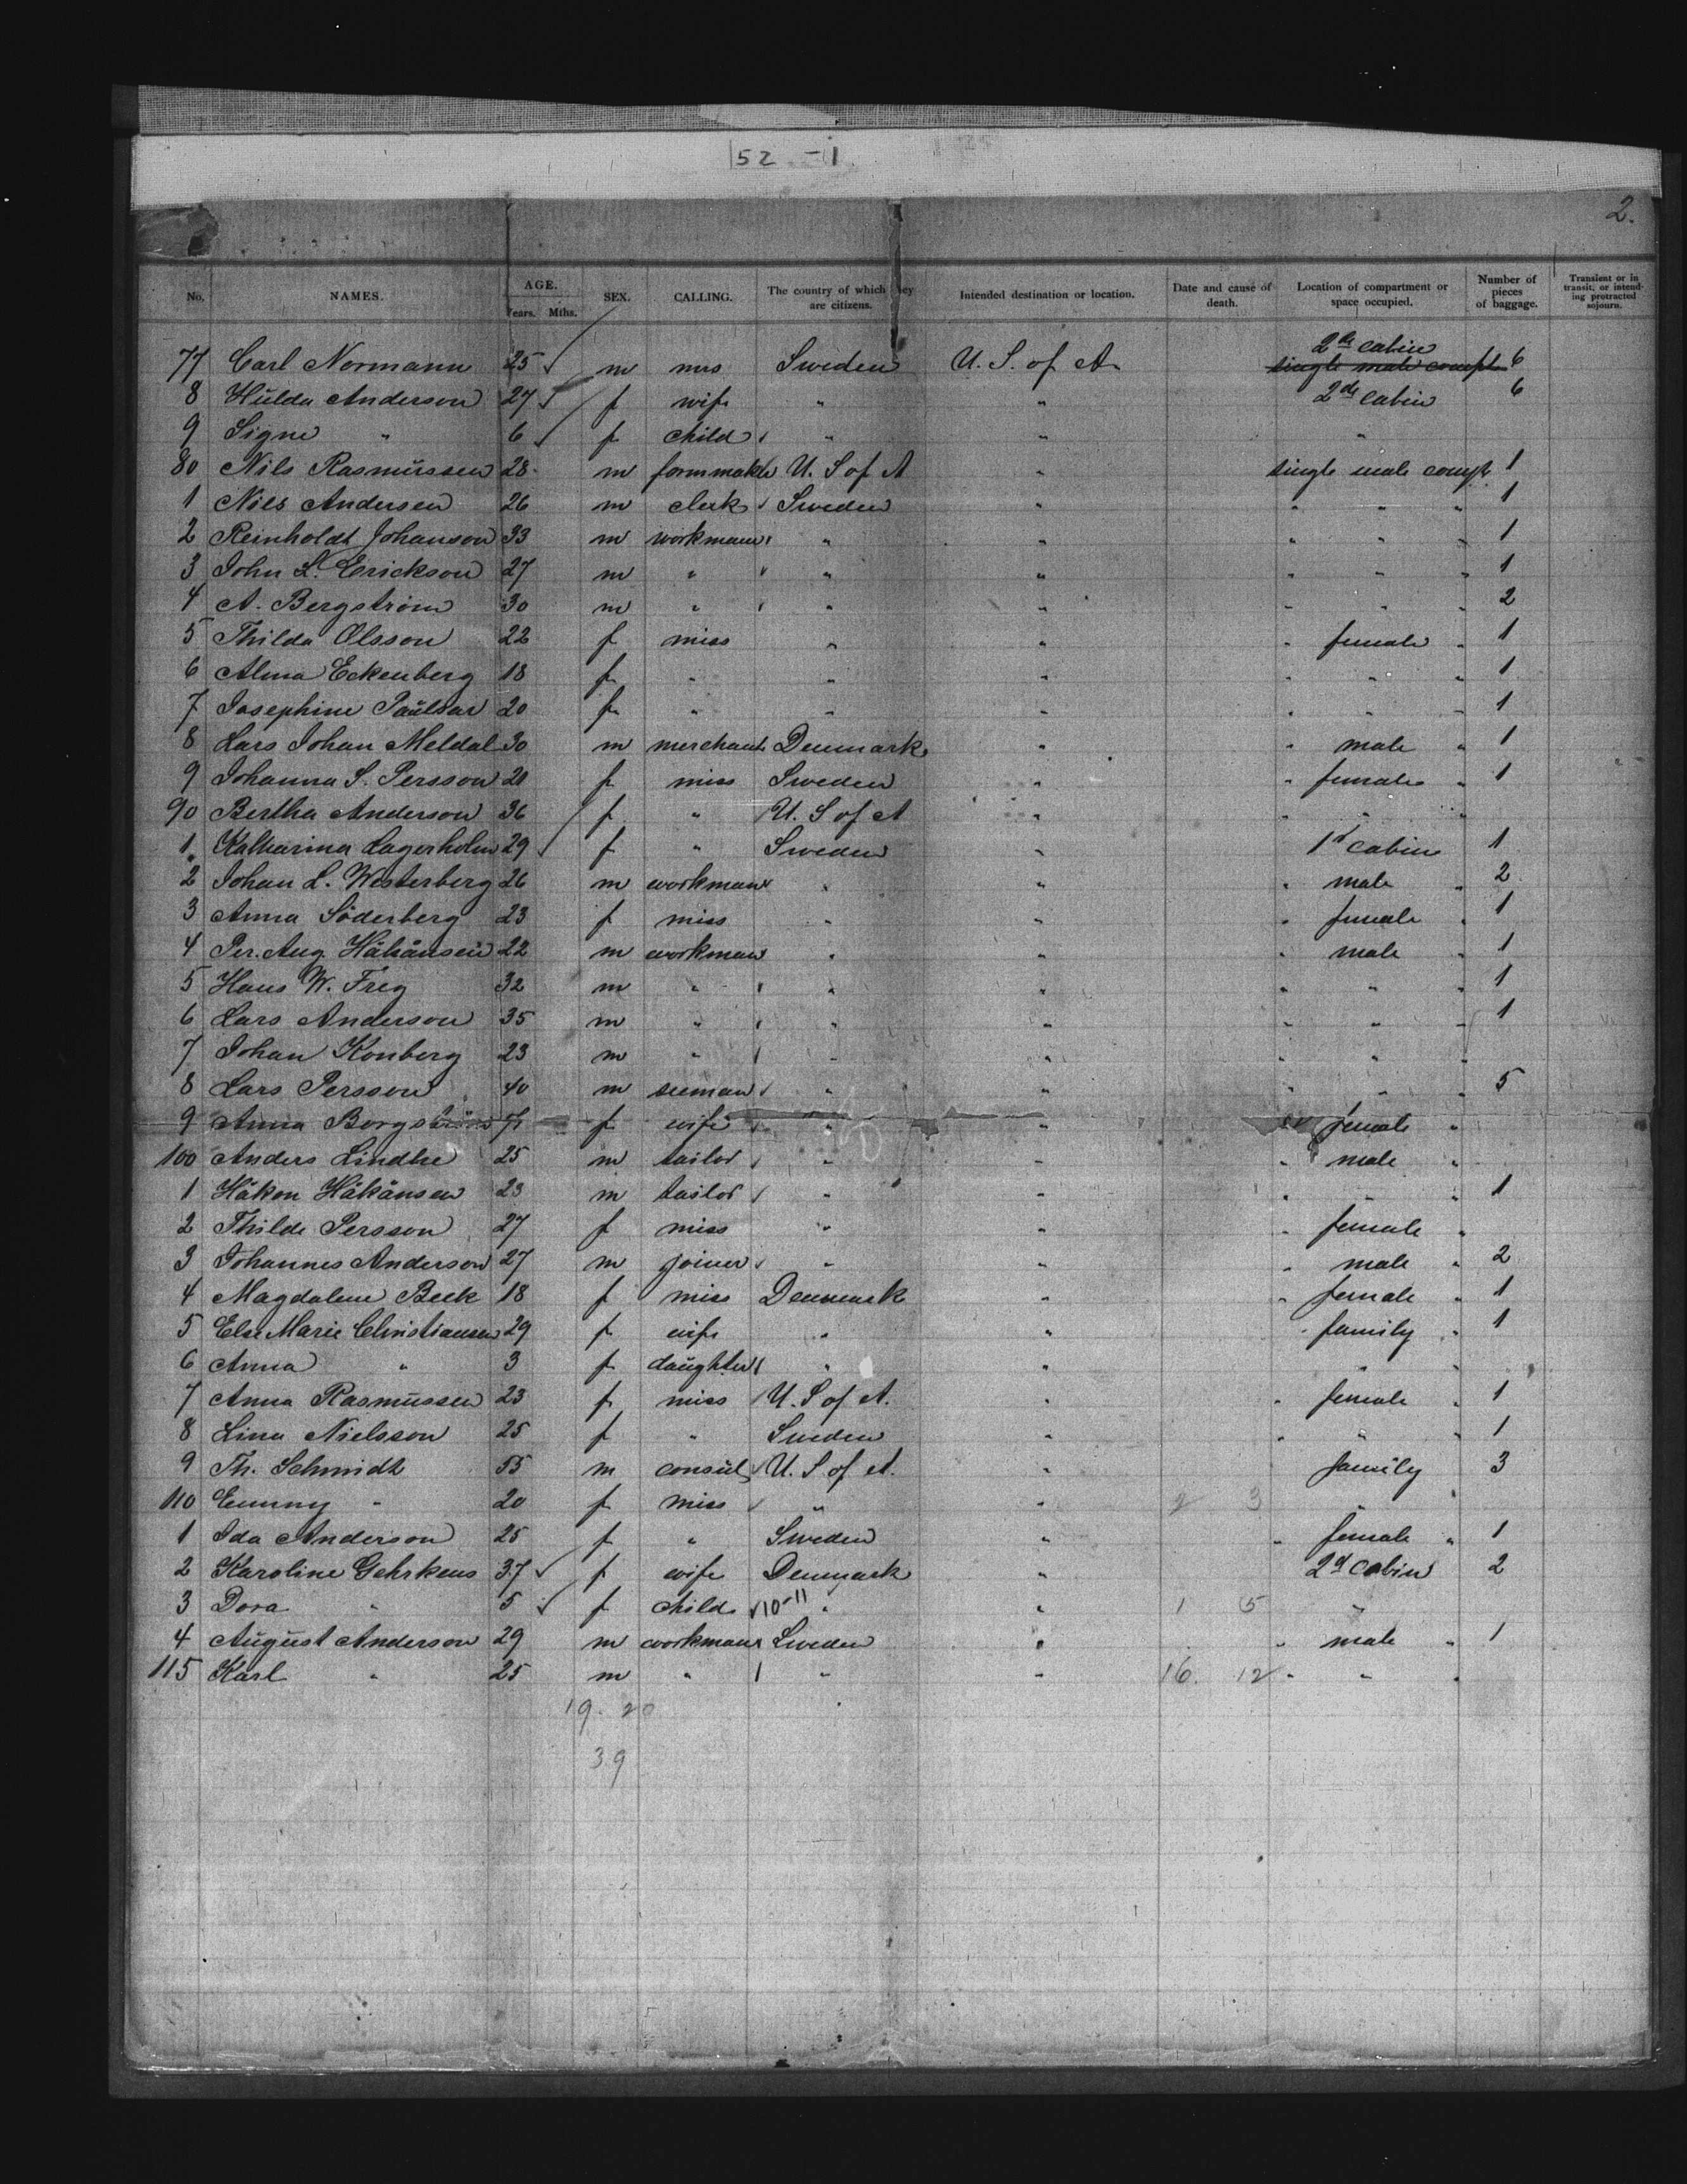 52 - 1
2.
No. NAMES. AGE. Years. Mths. SEX. CALLING. The country of which they are citizens. Intended destination or location. Date and cause of death. Location of compartment or space occupied. Number of pieces of baggage. Transient or in transit, or intending protracted sojourn.
2de cabin
77 Carl Normann 25 ✓ m mrs Sweden U. S. of A. single male compt 6
8 Hulda Anderson 27 ✓ f wife " " 2de cabin 6
9 Signe " 6 ✓ f child " " "
80 Nils Rasmussen 28 m formmaker U. S of A " single male compt 1
1 Nils Andersen 26 m clerk Sweden " " " " 1
2 Reinholdt Johanson 33 m workman " " " " " 1
3 John L. Erickson 27 m " " " " " " 1
4 A. Bergström 30 m " " " " " " 2
5 Thilda Olsson 22 f miss " " " female " 1
6 Alma Eckenberg 18 f " " " " " " 1
7 Josephine 20 f " " " " " " 1
8 Lars Johan Meldal 30 m merchant Denmark " " male " 1
9 Johanna S. Persson 21 f miss Sweden " " female " 1
90 Bertha Anderson 36 f " U. S of A " " " "
1 Katharina Lagerholm 29 ✓ f " Sweden " 1st cabin 1
2 Johan L. Westerberg 26 m workman " " " male " 2
3 Anna Söderberg 23 f miss " " " female " 1
4 Per. Aug. Håkånsen 22 m workman " " " male " 1
5 Hans W. Frey 32 m " " " " " " 1
6 Lars Anderson 35 m " " " " " " 1
7 Johan Konberg 23 m " " " " " "
8 Lars Persson 40 m seeman " " " " " 5
9 Anna Borgström 71 f wife " " female "
100 Anders Lindhe 25 m tailor " " " male "
1 Håkon Håkånsen 23 m tailor " " " " " 1
2 Thilde Persson 27 f miss " " " female "
3 Johannes Anderson 27 m joiner " " " male " 2
4 Magdalene Beck 18 f miss Denmark " " female " 1
5 Else Marie Christiansen 29 f wife " " " family " 1
6 Anna " 3 f daughter " " " "
7 Anna Rasmussen 23 f miss U. S of A. " " female " 1
8 Lina Nielsson 25 f " Sweden " " " " 1
9 Th. Schmidt 55 m consul U. S of A. " family 3
110 Emmy " 20 f miss " " 2 3 " "
1 Ida Anderson 25 f " Sweden " " female " 1
2 Karoline Gehrkens 37 ✓ f wife Denmark " 2d cabin 2
3 Dora " 5 ✓ f child 10-11 " " 1 5 "
4 August Anderson 29 m workman Sweden " " male " 1
115 Karl " 25 m " " " 16. 12 " " "
19. 20
39